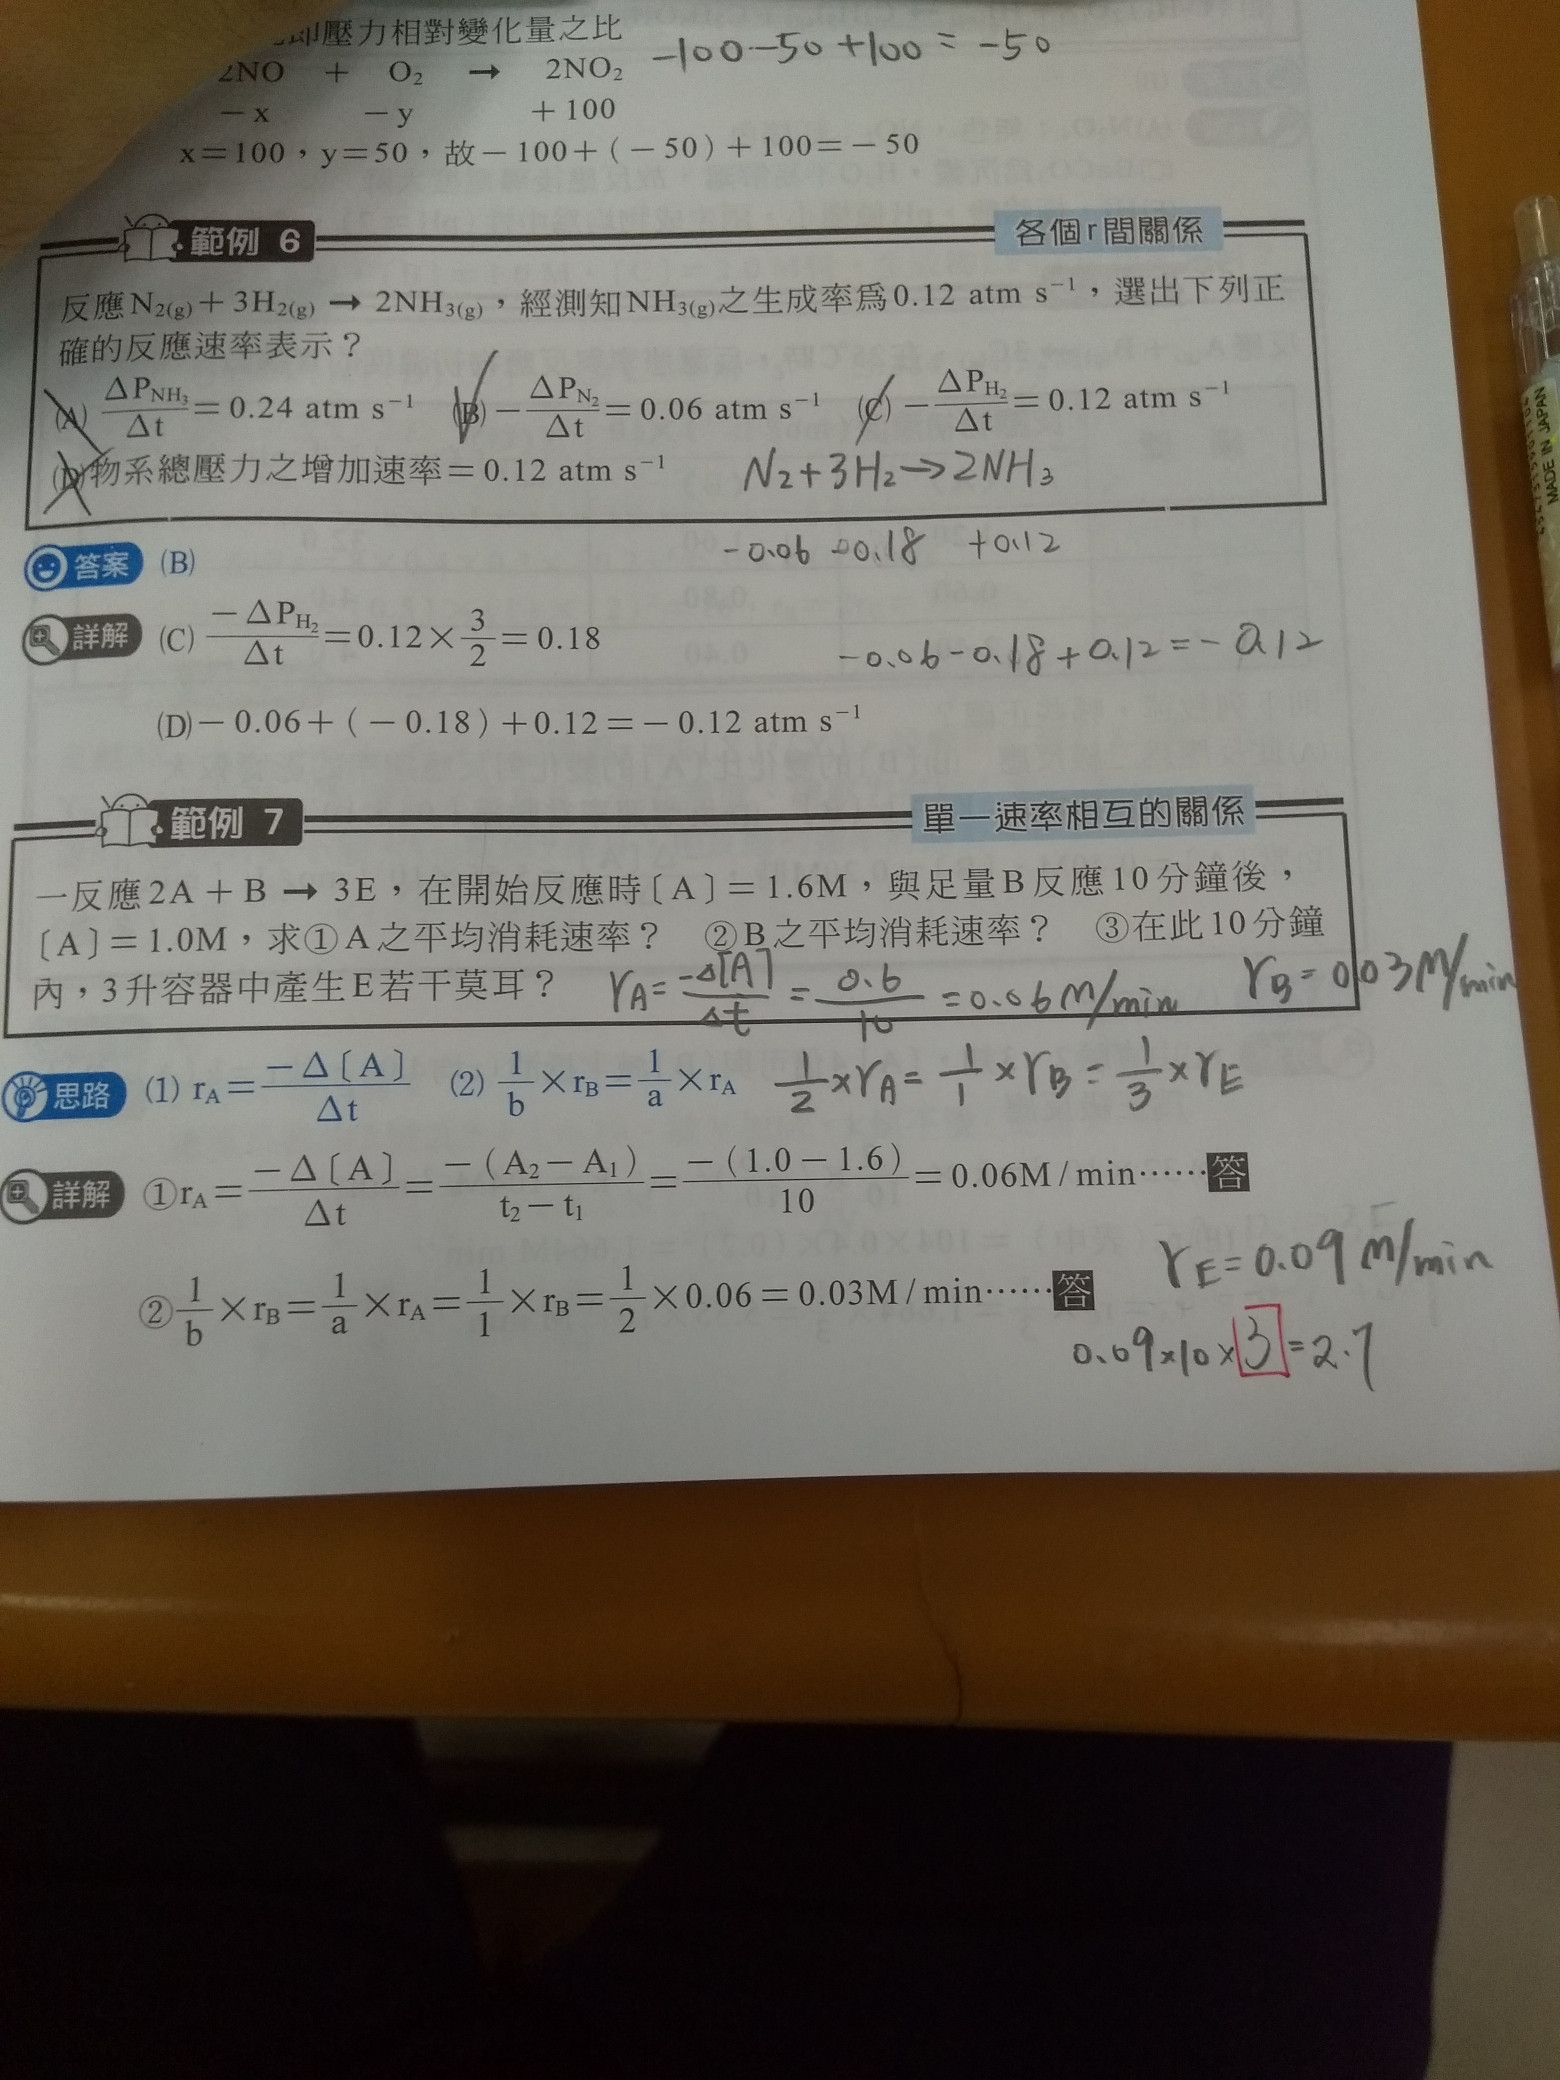 即壓力相對變化量之比
2NO + O₂ → 2NO₂ -100-50+100 = -50
－x －y ＋100
x＝100，y＝50，故－100＋（－50）＋100＝－50
範例 6 各個r間關係
反應N₂(g)＋3H₂(g) → 2NH₃(g)，經測知NH₃(g)之生成率為0.12 atm s⁻¹，選出下列正
確的反應速率表示？
(A) ΔP_NH₃/Δt＝0.24 atm s⁻¹ (B)－ΔP_N₂/Δt＝0.06 atm s⁻¹ (C)－ΔP_H₂/Δt＝0.12 atm s⁻¹
(D)物系總壓力之增加速率＝0.12 atm s⁻¹ N₂+3H₂→2NH₃
-0.06 -0.18 +0.12
答案 (B)
詳解 (C) －ΔP_H₂/Δt＝0.12×3/2＝0.18
-0.06-0.18+0.12=-0.12
(D)－0.06＋（－0.18）＋0.12＝－0.12 atm s⁻¹
範例 7 單一速率相互的關係
一反應2A＋B → 3E，在開始反應時〔A〕＝1.6M，與足量B反應10分鐘後，
〔A〕＝1.0M，求①A之平均消耗速率？ ②B之平均消耗速率？ ③在此10分鐘
內，3升容器中產生E若干莫耳？ r_A= -Δ[A]/Δt = 0.6/10 =0.06M/min r_B=0.03M/min
思路 (1) r_A＝－Δ〔A〕/Δt (2) 1/b×r_B＝1/a×r_A 1/2×r_A=1/1×r_B=1/3×r_E
詳解 ①r_A＝－Δ〔A〕/Δt＝－（A₂－A₁）/t₂－t₁＝－（1.0－1.6）/10＝0.06M/min……答
r_E=0.09M/min
②1/b×r_B＝1/a×r_A＝1/1×r_B＝1/2×0.06＝0.03M/min……答
0.09×10×3=2.7
MADE IN JAPAN